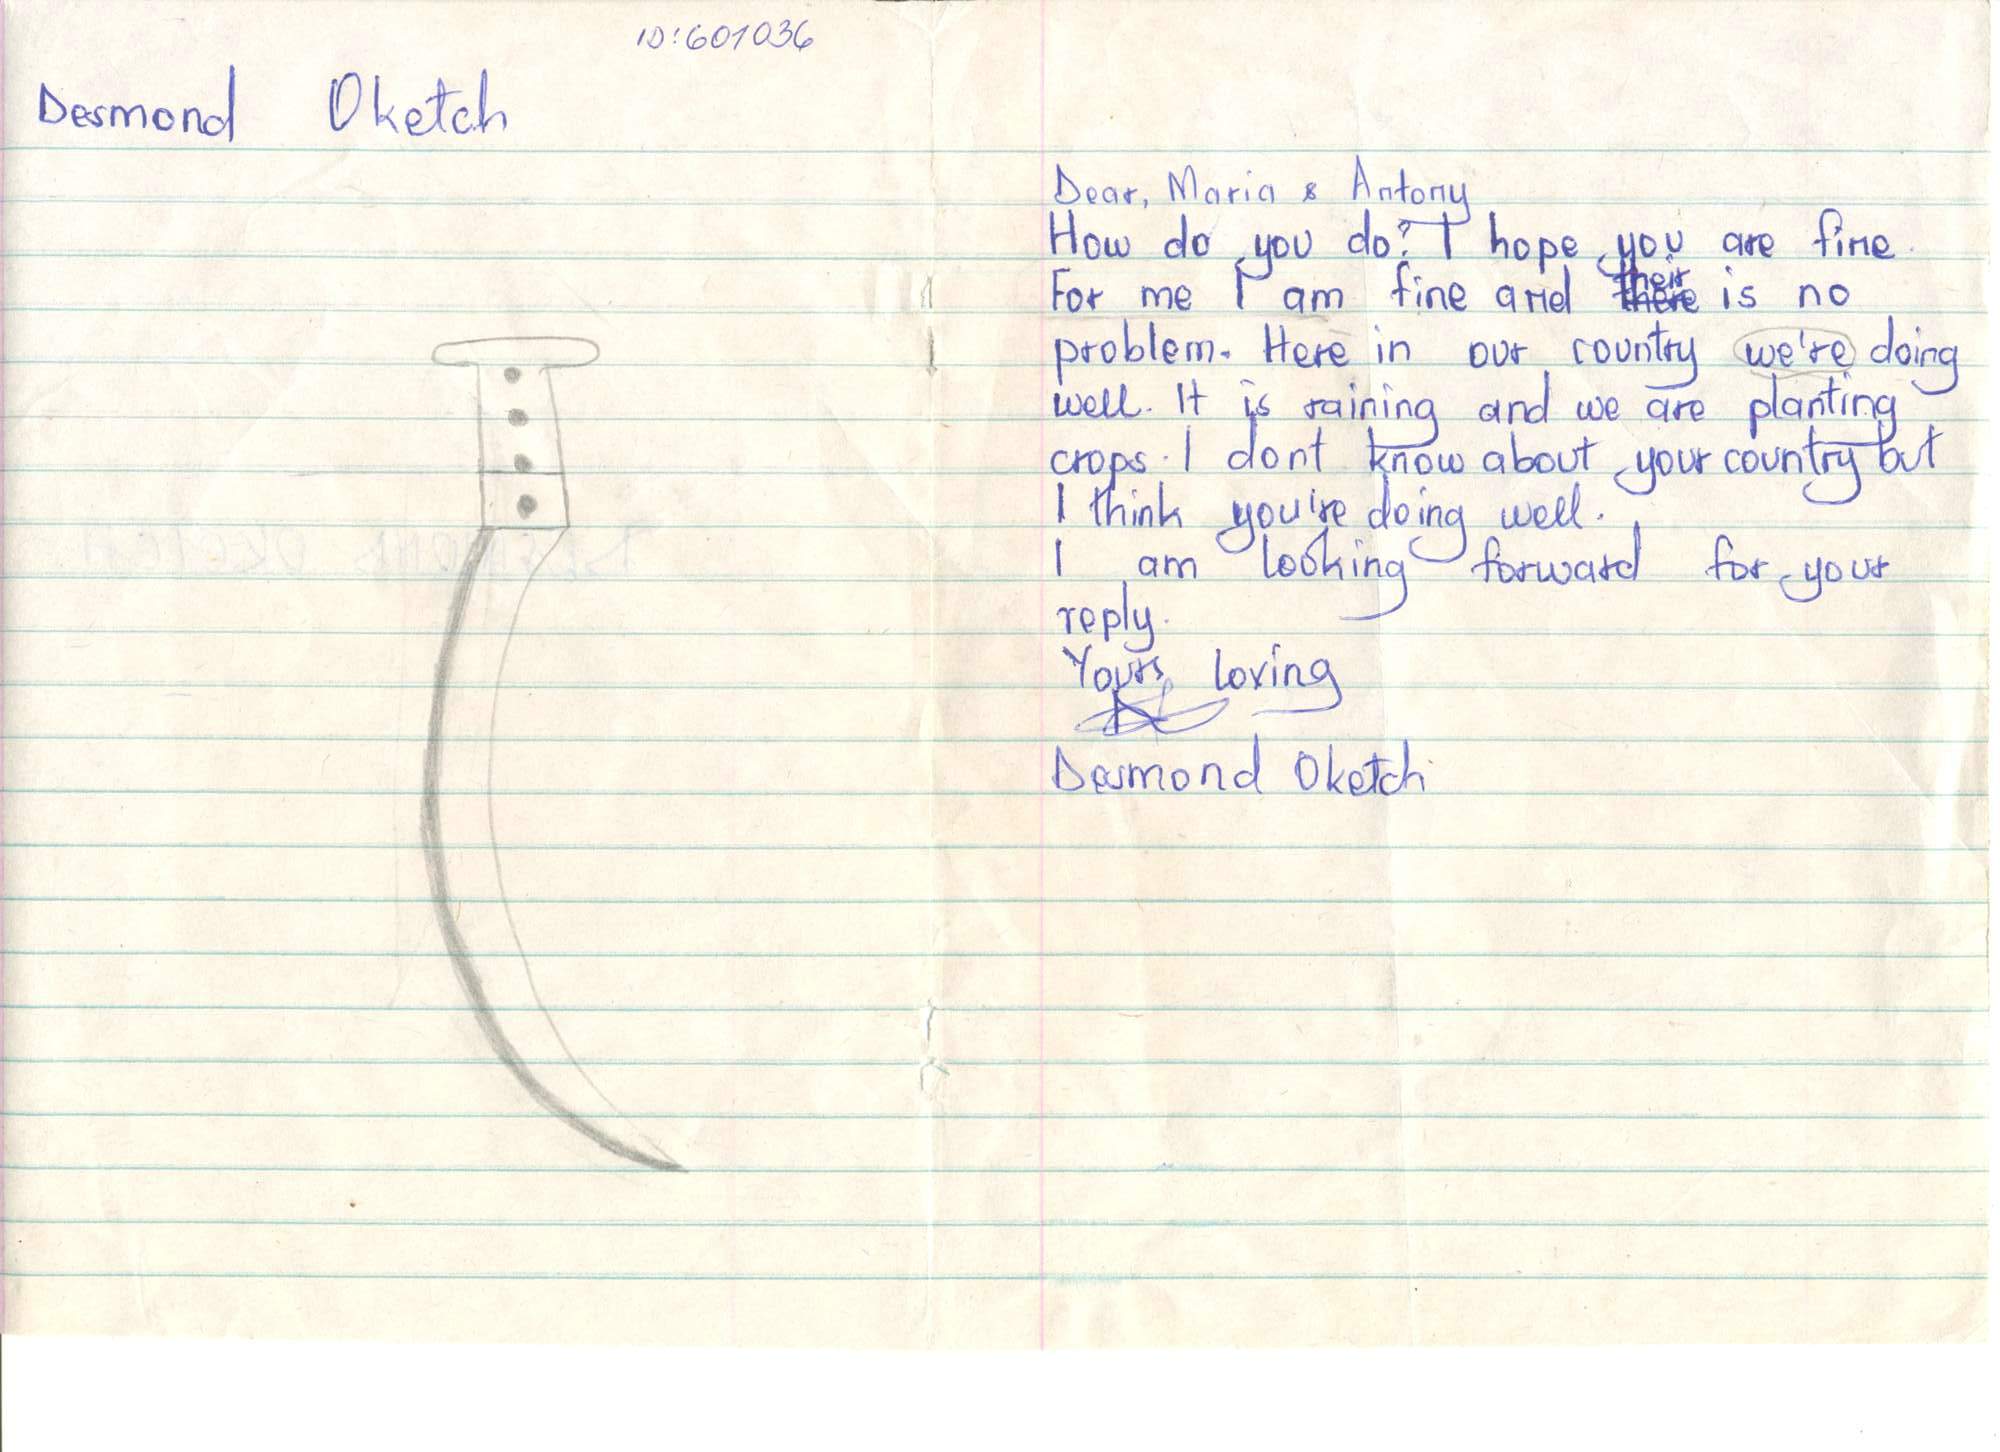 ID:601036
Desmond Oketch
Dear, Maria & Antony
How do you do? I hope you are fine.
For me I am fine and their is no
problem. Here in our country we're doing
well. It is raining and we are planting
crops. I dont know about your country but
I think you're doing well.
I am looking forward for your
reply.
Yours loving
Desmond Oketch